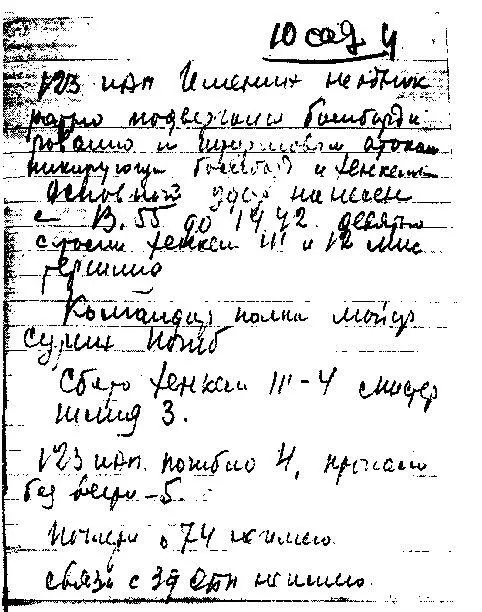 10 сад 4
123 иап Именин неоднок
ратно подвергался бомбарди
рованию и штурмовым атакам
пикирующих бомбард и хенкелей
Основной удар нанесен
с 13.55 до 14.42 девятью
хенкель 111 и 12 мис
Командир полка майор
Сурин погиб
Сбито хенкель 111 - 4 мисер
шмид 3.
123 иап. погибло 4, пропало
без вести - 5.
Потери о 74 не имею
связи с 39 не имею.